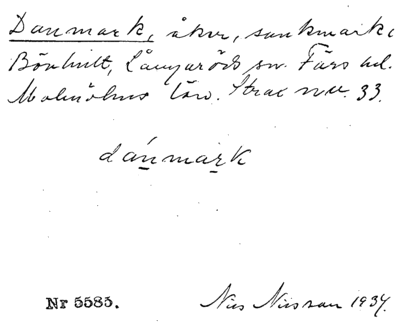 Danmark, åker, sankmark
Bönhult, Långaröds sn. Färs hd.
Malmöhus län. Skrae nr. 33.
dánmark
Nr 5585.
Nils Nilsson 1934.